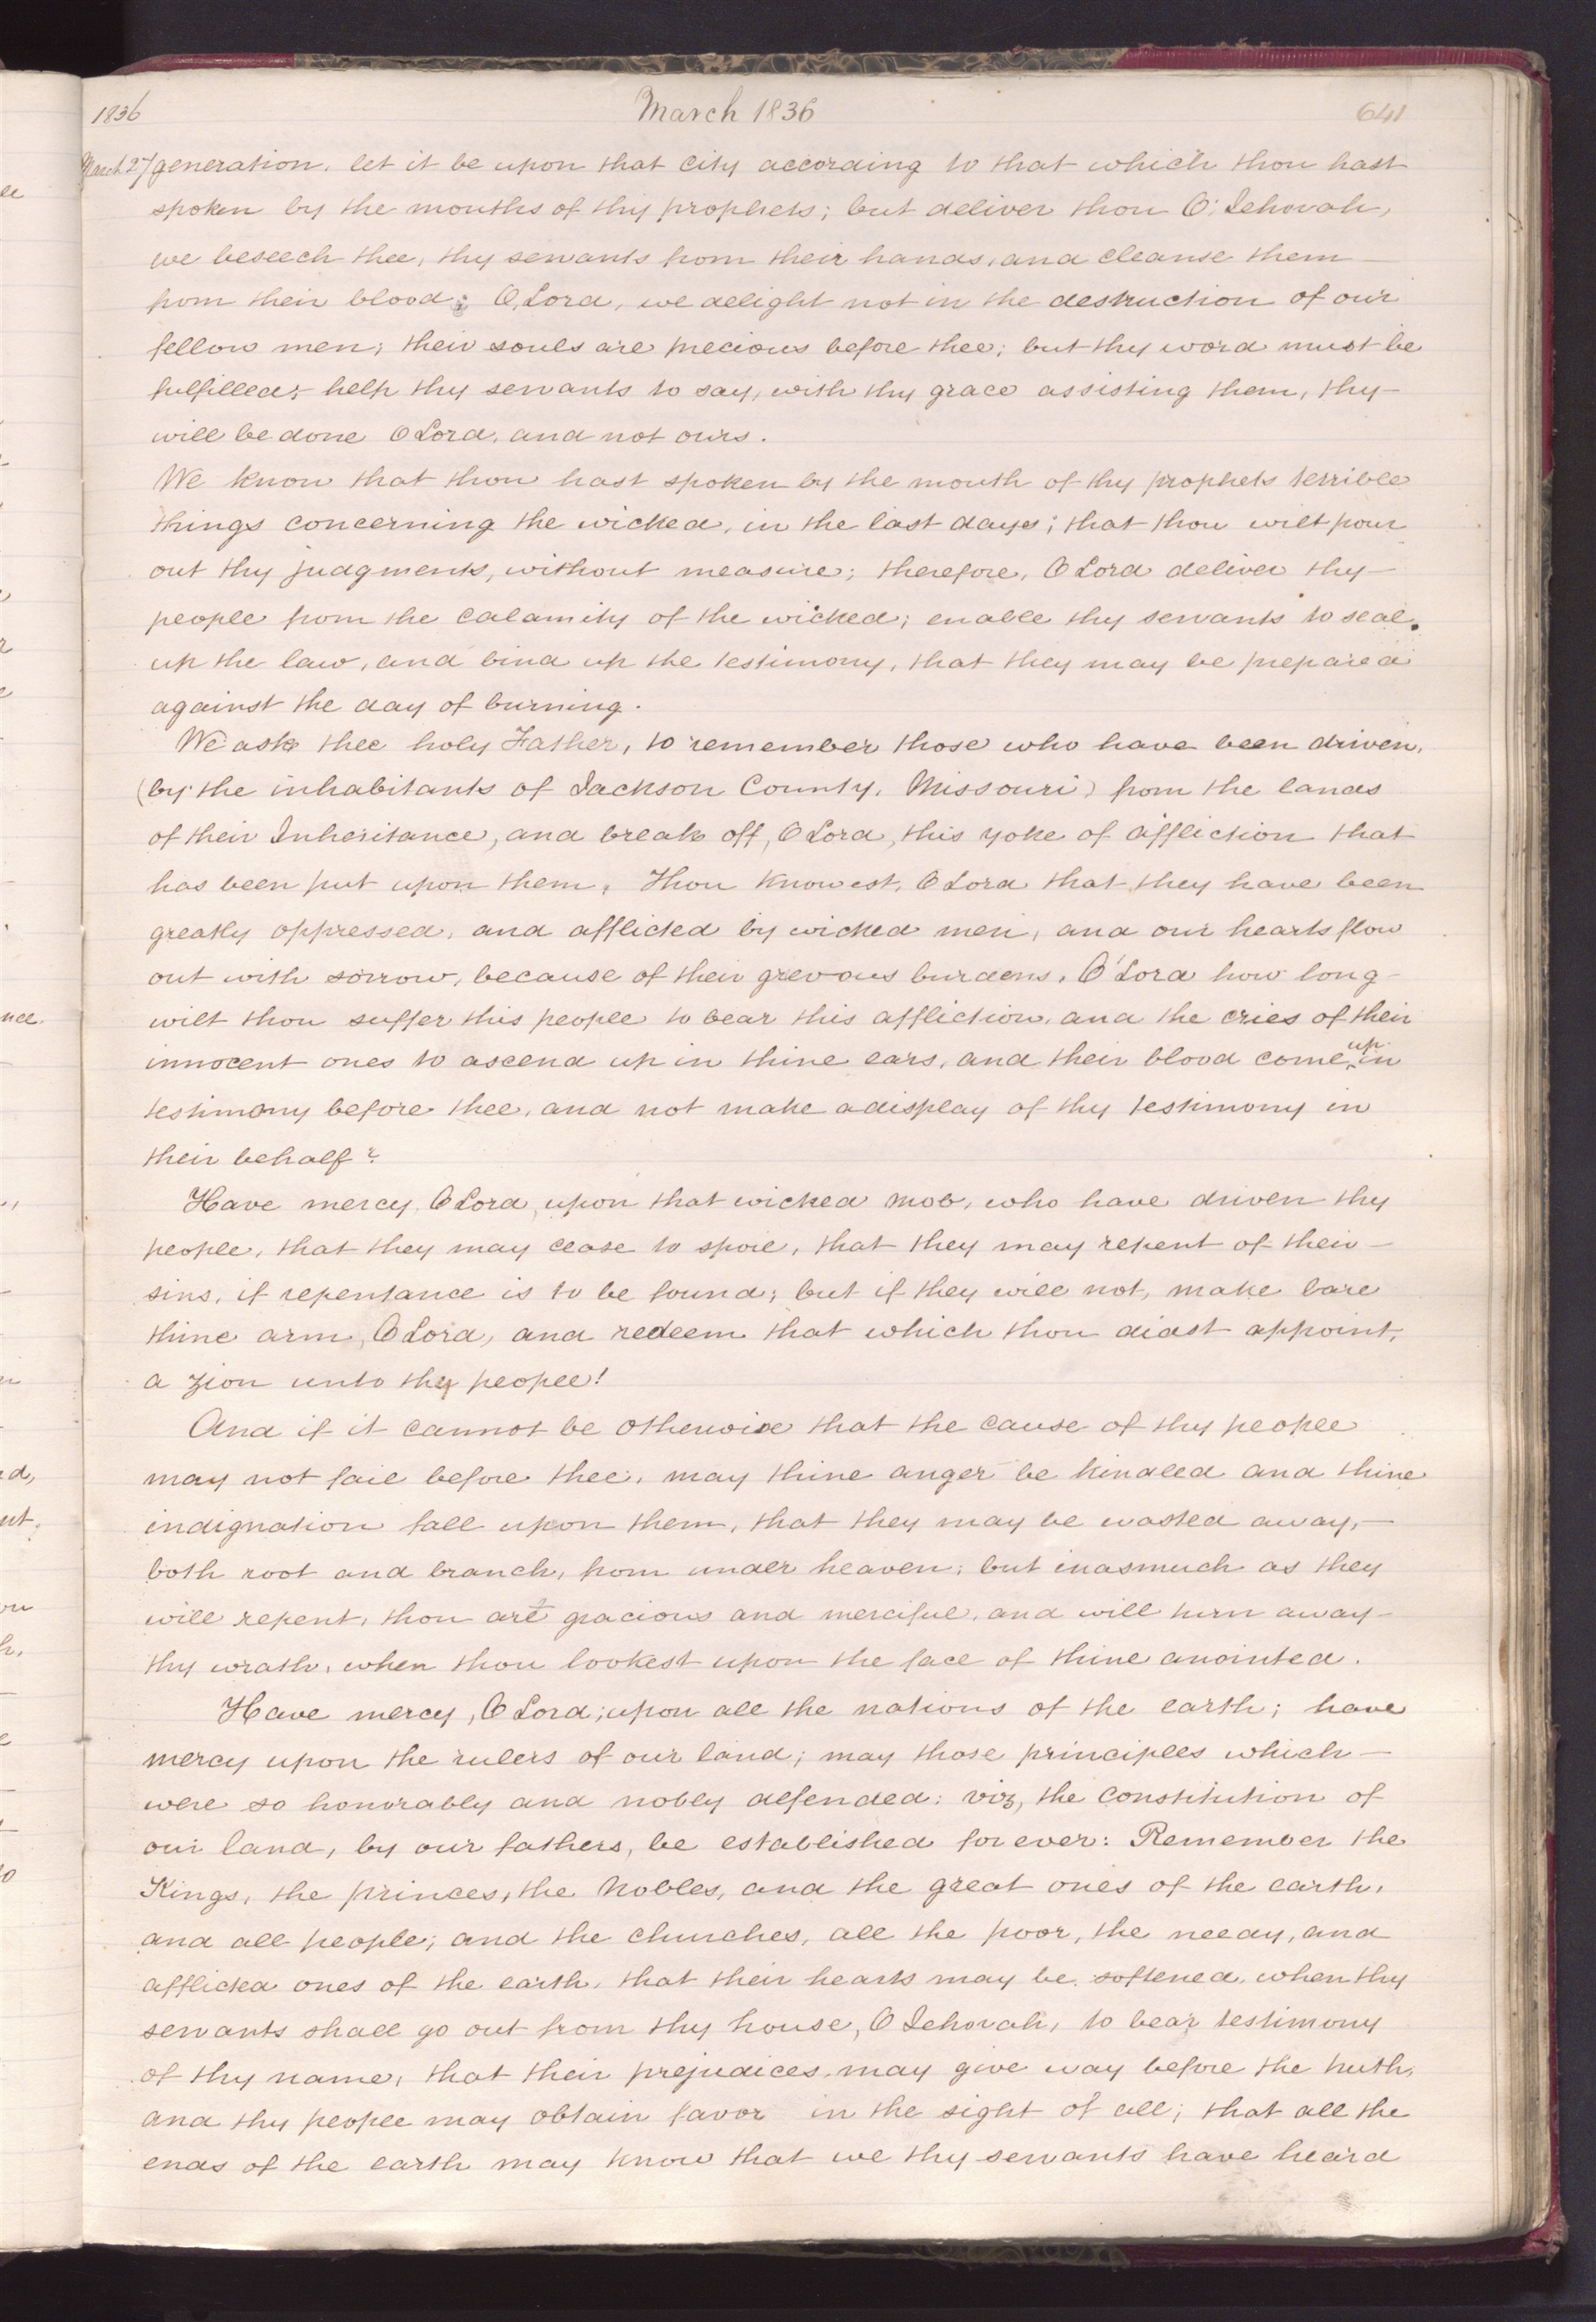 1836 March 1836 641
March 27 generation, let it be upon that city according to that which thou hast
spoken by the mouths of thy prophets; but deliver thou O; Jehovah,
we beseech thee, thy servants from their hands, and cleanse them
from their blood; O, Lord, we delight not in the destruction of our
fellow men; their souls are precious before thee; but thy word must be
fulfilled; help thy servants to say, with thy grace assisting them, thy
will be done O Lord, and not ours.
We know that thou hast spoken by the mouth of thy prophets terrible
things concerning the wicked, in the last days; that thou wilt pour
out thy judgments, without measure; therefore, O Lord deliver thy
people from the calamity of the wicked; enable thy servants to seal
up the law, and bind up the testimony, that they may be prepared
against the day of burning.
We ask thee holy Father, to remember those who have been driven,
(by the inhabitants of Jackson County, Missouri) from the lands
of their Inheritance, and break off, O Lord, this yoke of affliction that
has been put upon them. Thou knowest, O Lord that they have been
greatly oppressed, and afflicted by wicked men, and our hearts flow
out with sorrow, because of their grevous burdens. O Lord how long
wilt thou suffer this people to bear this affliction, and the cries of their
innocent ones to ascend up in thine ears, and their blood come up in
testimony before thee, and not make a display of thy testimony in
their behalf?
Have mercy, O Lord, upon that wicked mob, who have driven thy
people, that they may cease to spoil, that they may repent of their
sins, if repentance is to be found; but if they will not, make bare
thine arm, O Lord, and redeem that which thou didst appoint,
a Zion unto thy people!
And if it cannot be otherwise that the cause of thy people
may not fail before thee, may thine anger be kindled and thine
indignation fall upon them, that they may be wasted away,
both root and branch, from under heaven; but inasmuch as they
will repent, thou art gracious and merciful, and will turn away
thy wrath, when thou lookest upon the face of thine anointed.
Have mercy, O Lord; upon all the nations of the earth; have
mercy upon the rulers of our land; may those principles which
were so honorably and nobly defended: viz, the Constitution of
our land, by our fathers, be established for ever: Remember the
Kings, the princes, the Nobles, and the great ones of the earth,
and all people; and the churches, all the poor, the needy, and
afflicted ones of the earth, that their hearts may be softened, when thy
servants shall go out from thy house, O Jehovah, to bear testimony
of thy name, that their prejudices, may give way before the truth,
and thy people may obtain favor in the sight of all; that all the
ends of the earth may know that we thy servants have heard